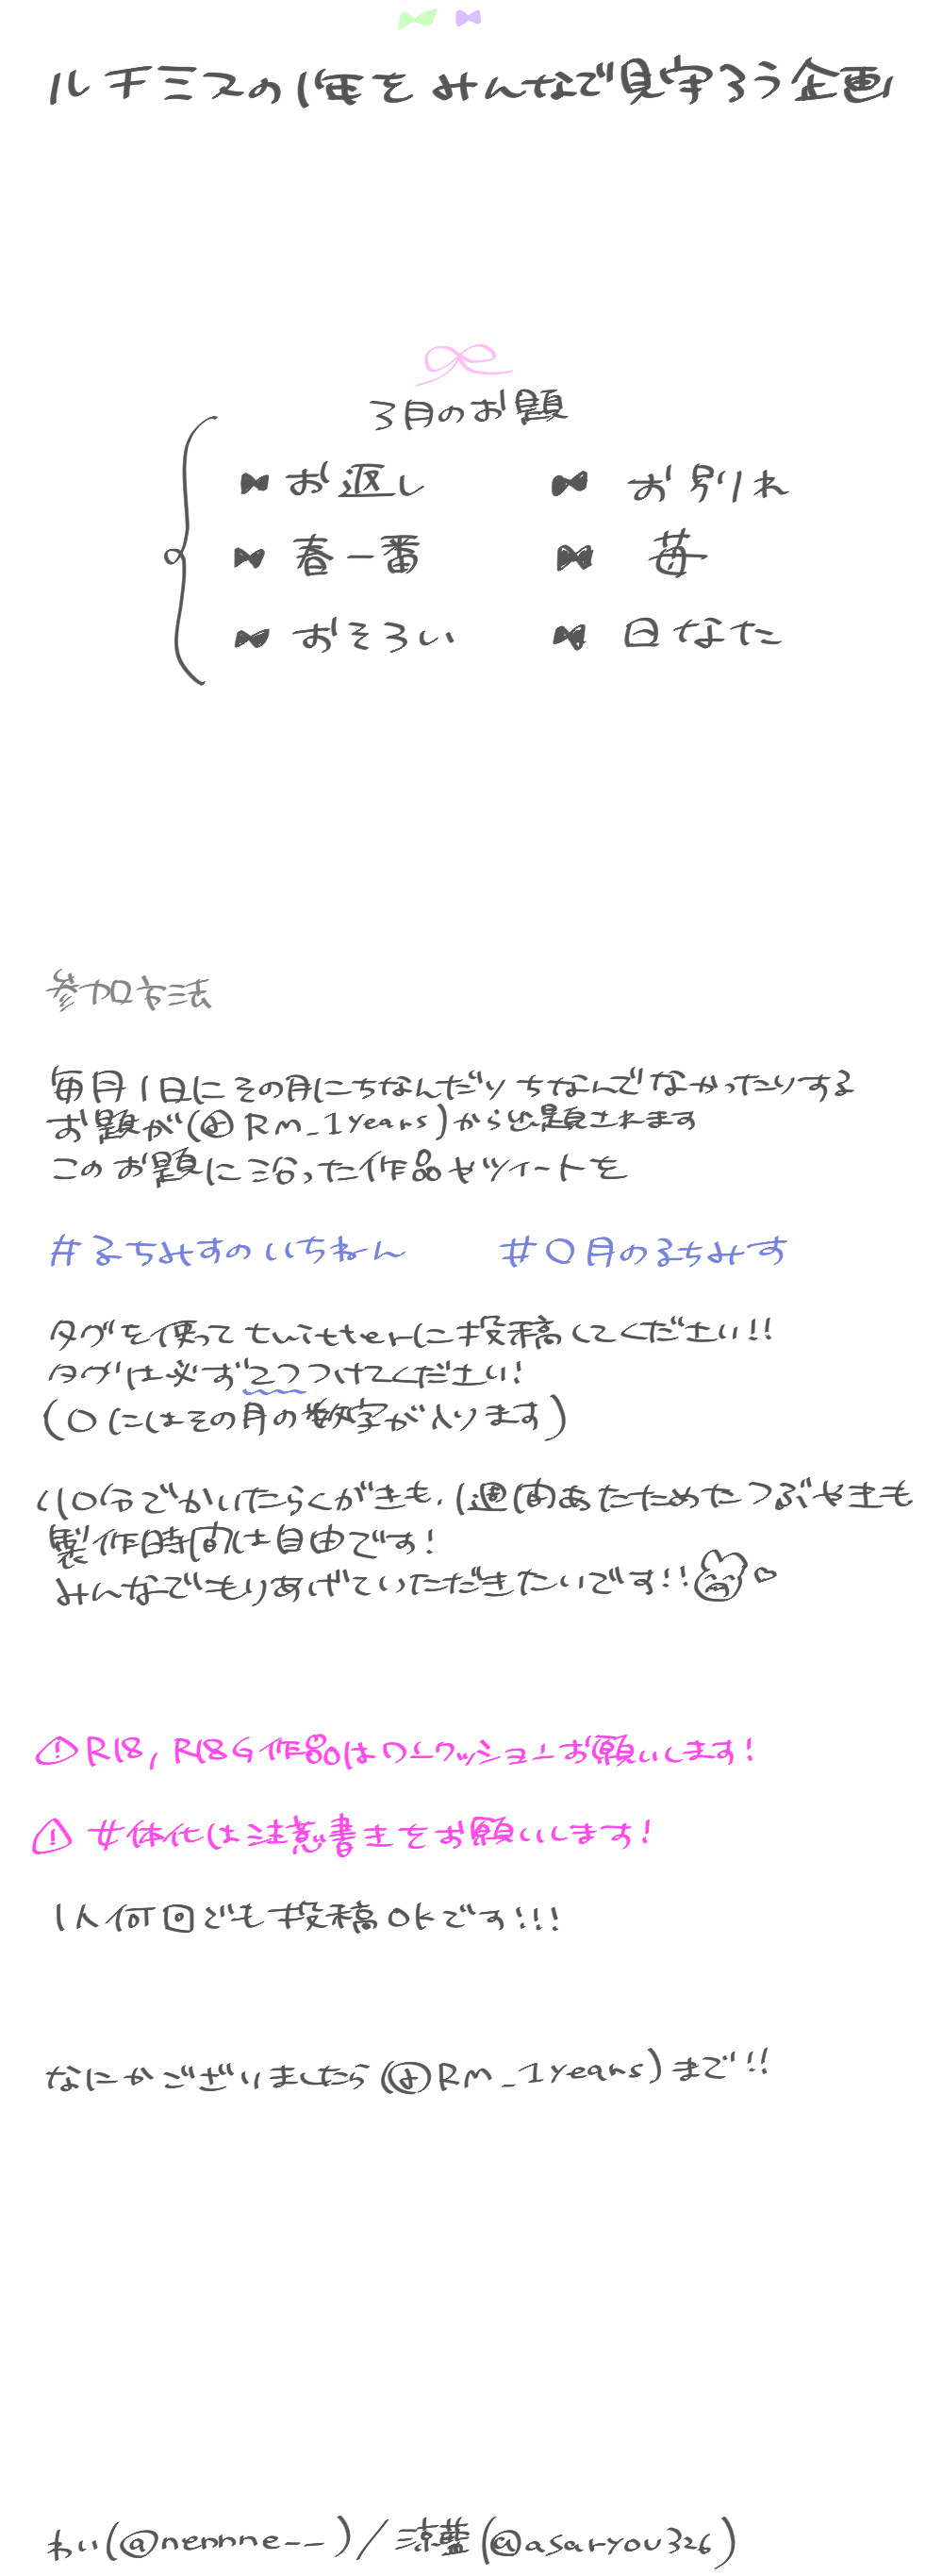 ルチミスの1年をみんなで見守ろう企画
3月のお題
お返し お別れ
春一番 苺
おそろい 日なた
参加方法
毎月1日にその月にちなんだりちなんでなかったりする
お題が(@RM_1years)から出題されます
このお題に沿った作品やツイートを
#るちみすのいちねん #〇月のるちみす
タグを使ってtwitterに投稿してください!!
タグは必ず2つつけてください!
(〇にはその月の数字が入ります)
10分でかいたらくがきも、1週間あたためたつぶやきも
製作時間は自由です!
みんなでもりあげていただきたいです!!
R18, R18G作品はワンクッションお願いします!
女体化は注意書きをお願いします!
1人何回でも投稿OKです!!!
なにかございましたら(@RM_1years)まで!!
れい(@nennne--)/涼藍(@asaryou326)